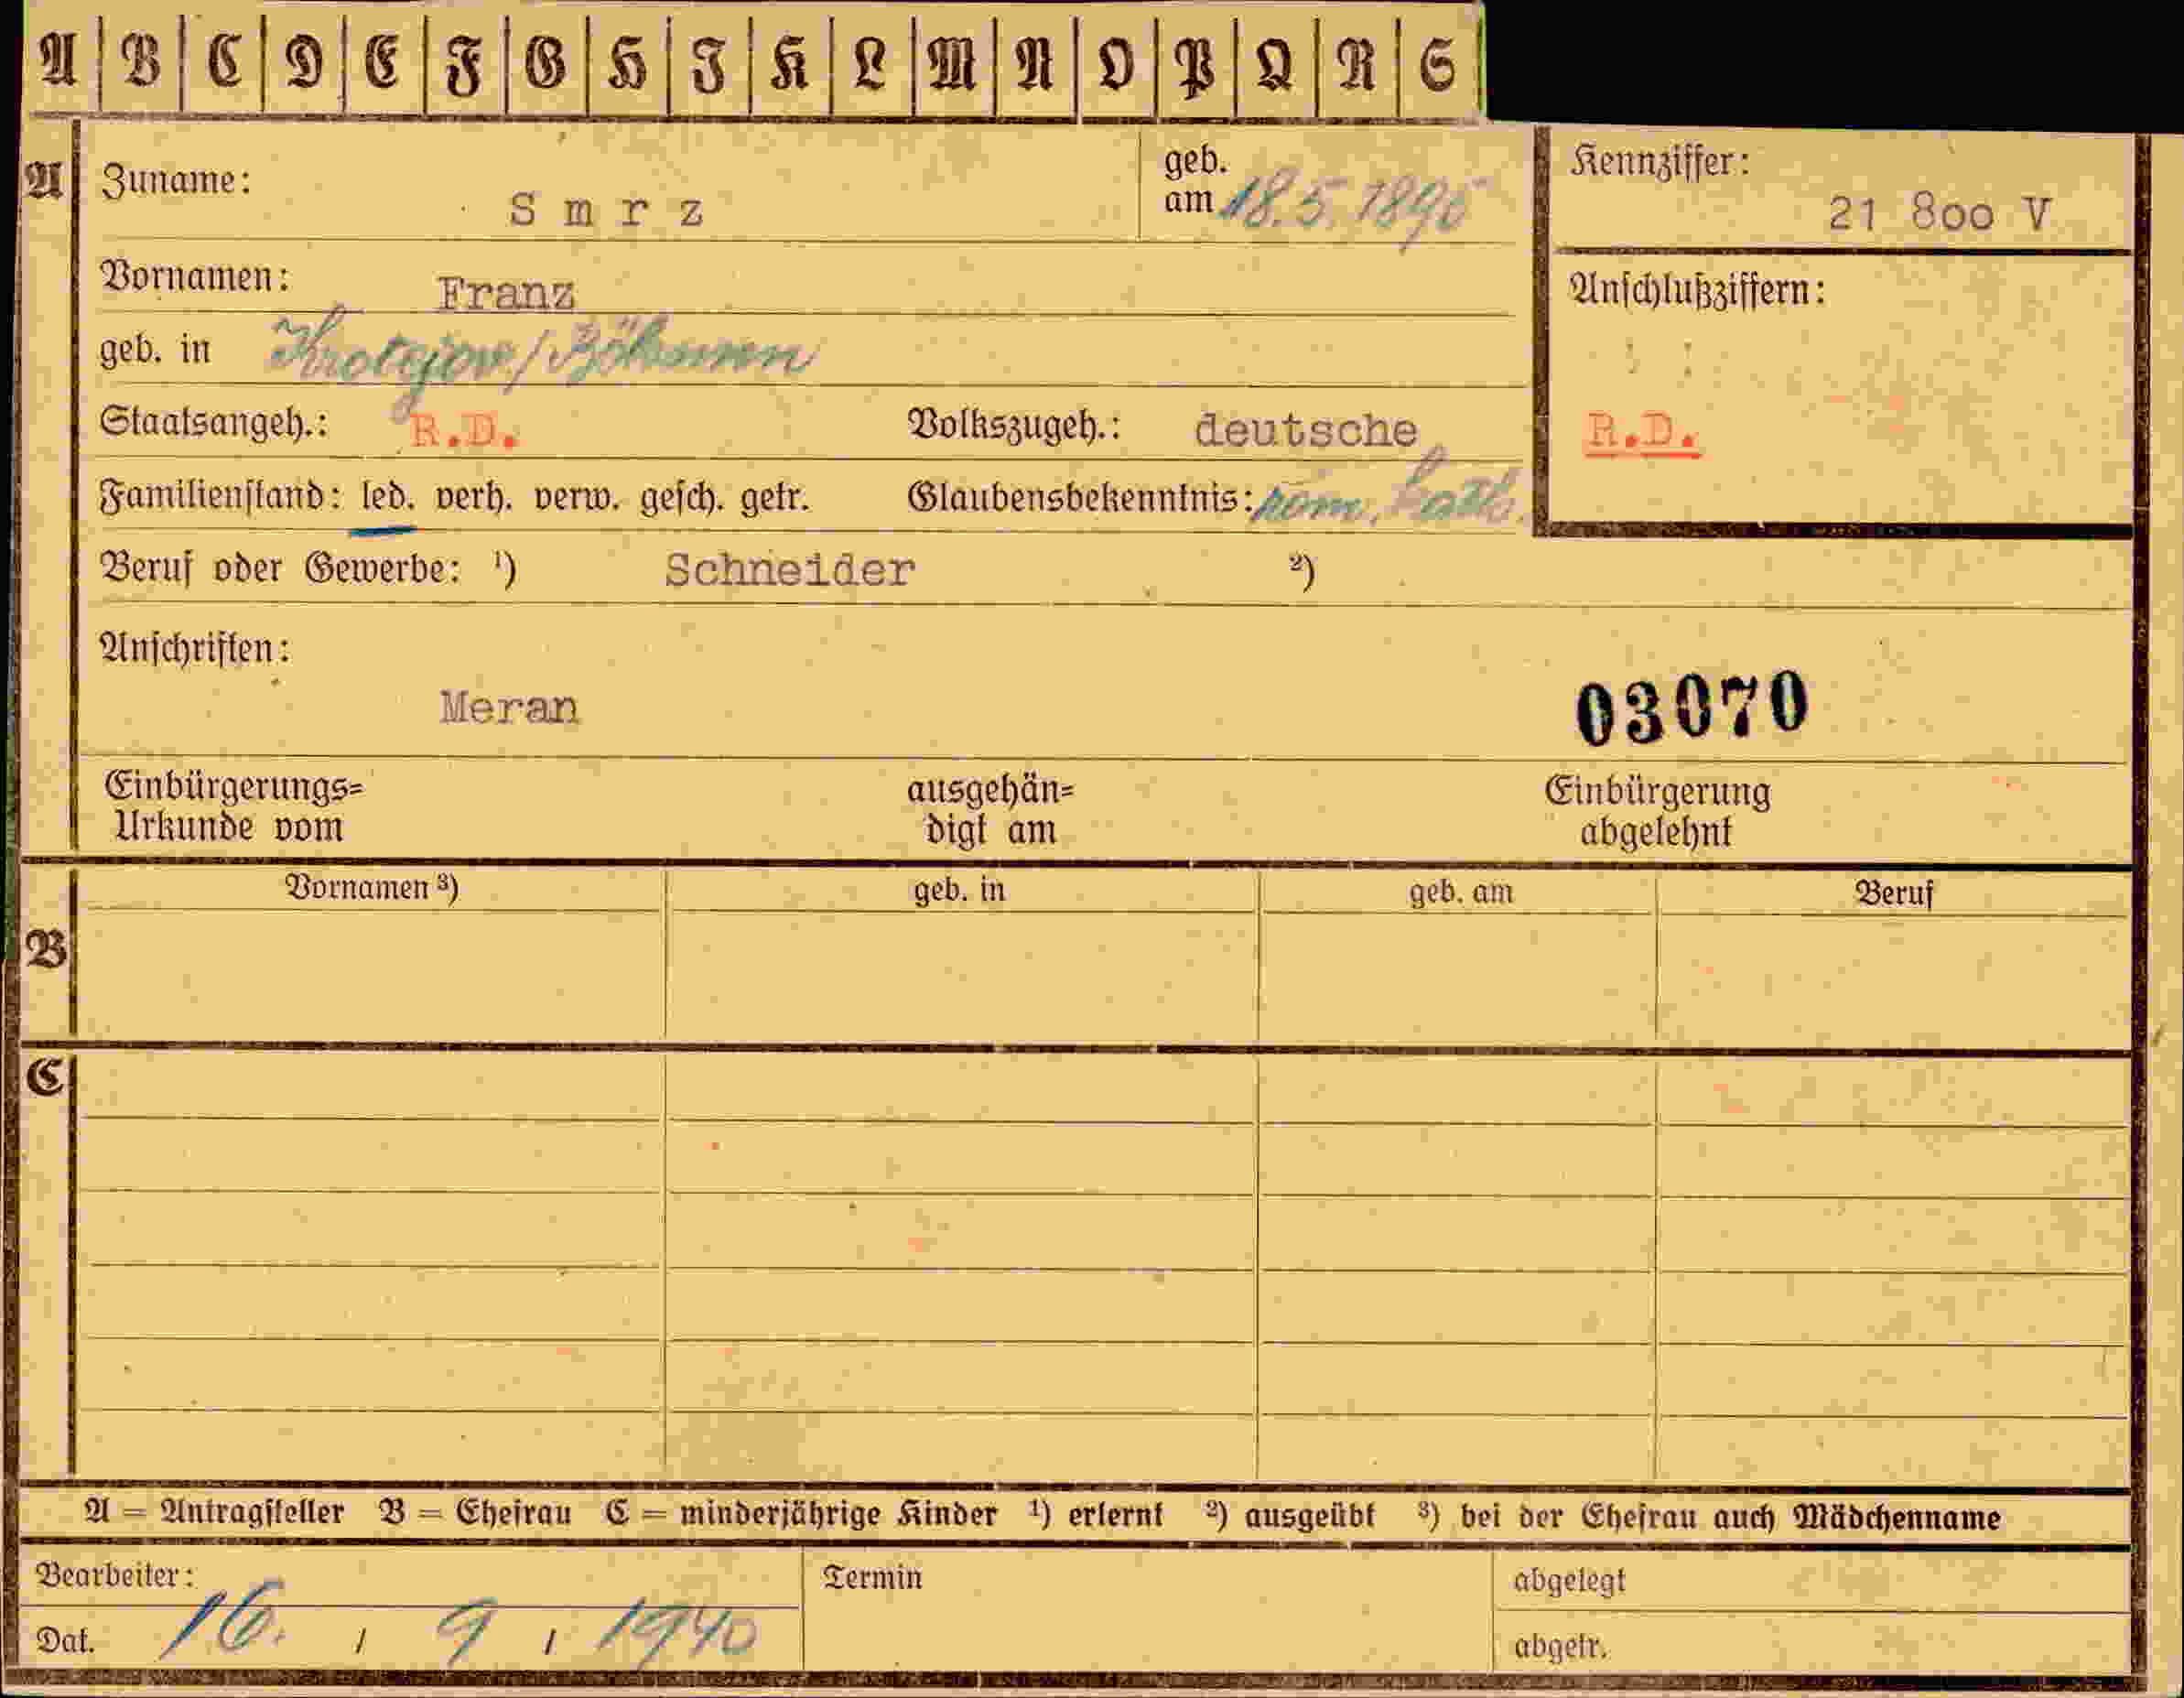 A B C D E F G H J K L M N O P Q R S
A Zuname: S m r z geb. am 18.5.1895 Kennziffer: 21 800 V
Vornamen: Franz Anschlußziffern:
geb. in /Böhmen
Staatsangeh.: R.D. Volkszugeh.: deutsche R.D.
Familienstand: led. verh. verw. gesch. getr. Glaubensbekenntnis: röm. kath.
Beruf oder Gewerbe: ¹) Schneider ²)
Anschriften:
Meran 03070
Einbürgerungs= ausgehän= Einbürgerung
Urkunde vom digt am abgelehnt
Vornamen ³) geb. in geb. am Beruf
B
C
A = Antragsteller B = Ehefrau C = minderjährige Kinder ¹) erlernt ²) ausgeübt ³) bei der Ehefrau auch Mädchenname
Bearbeiter: Termin abgelegt
Dat. 16. / 9 / 1940 abgetr.